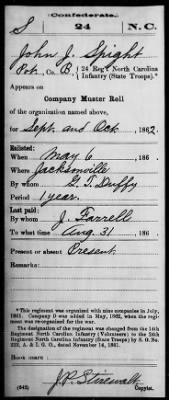 Confederate.
S 24 N.C.
John J. Spight
Pvt., Co. B, 24 Reg't North Carolina
Infantry (State Troops).*
Appears on
Company Muster Roll
of the organization named above,
for Sept. and Oct., 1862.
Enlisted:
When May 6, 186
Where Jacksonville
By whom G. T. Duffy
Period 1 year.
Last paid:
By whom J. Farrelle
To what time Aug. 31, 186
Present or absent Present
Remarks:
*This regiment was organized with nine companies in July,
1861. Company D was added in May, 1862, when the regi-
ment was re-organized for the war.
The designation of the regiment was changed from the 14th
Regiment North Carolina Infantry (Volunteers) to the 24th
Regiment North Carolina Infantry (State Troops) by S. O. No.
222, A. & I. G. O., dated November 14, 1861.
Book mark:
(642) J. P. Stirewalt
Copyist.